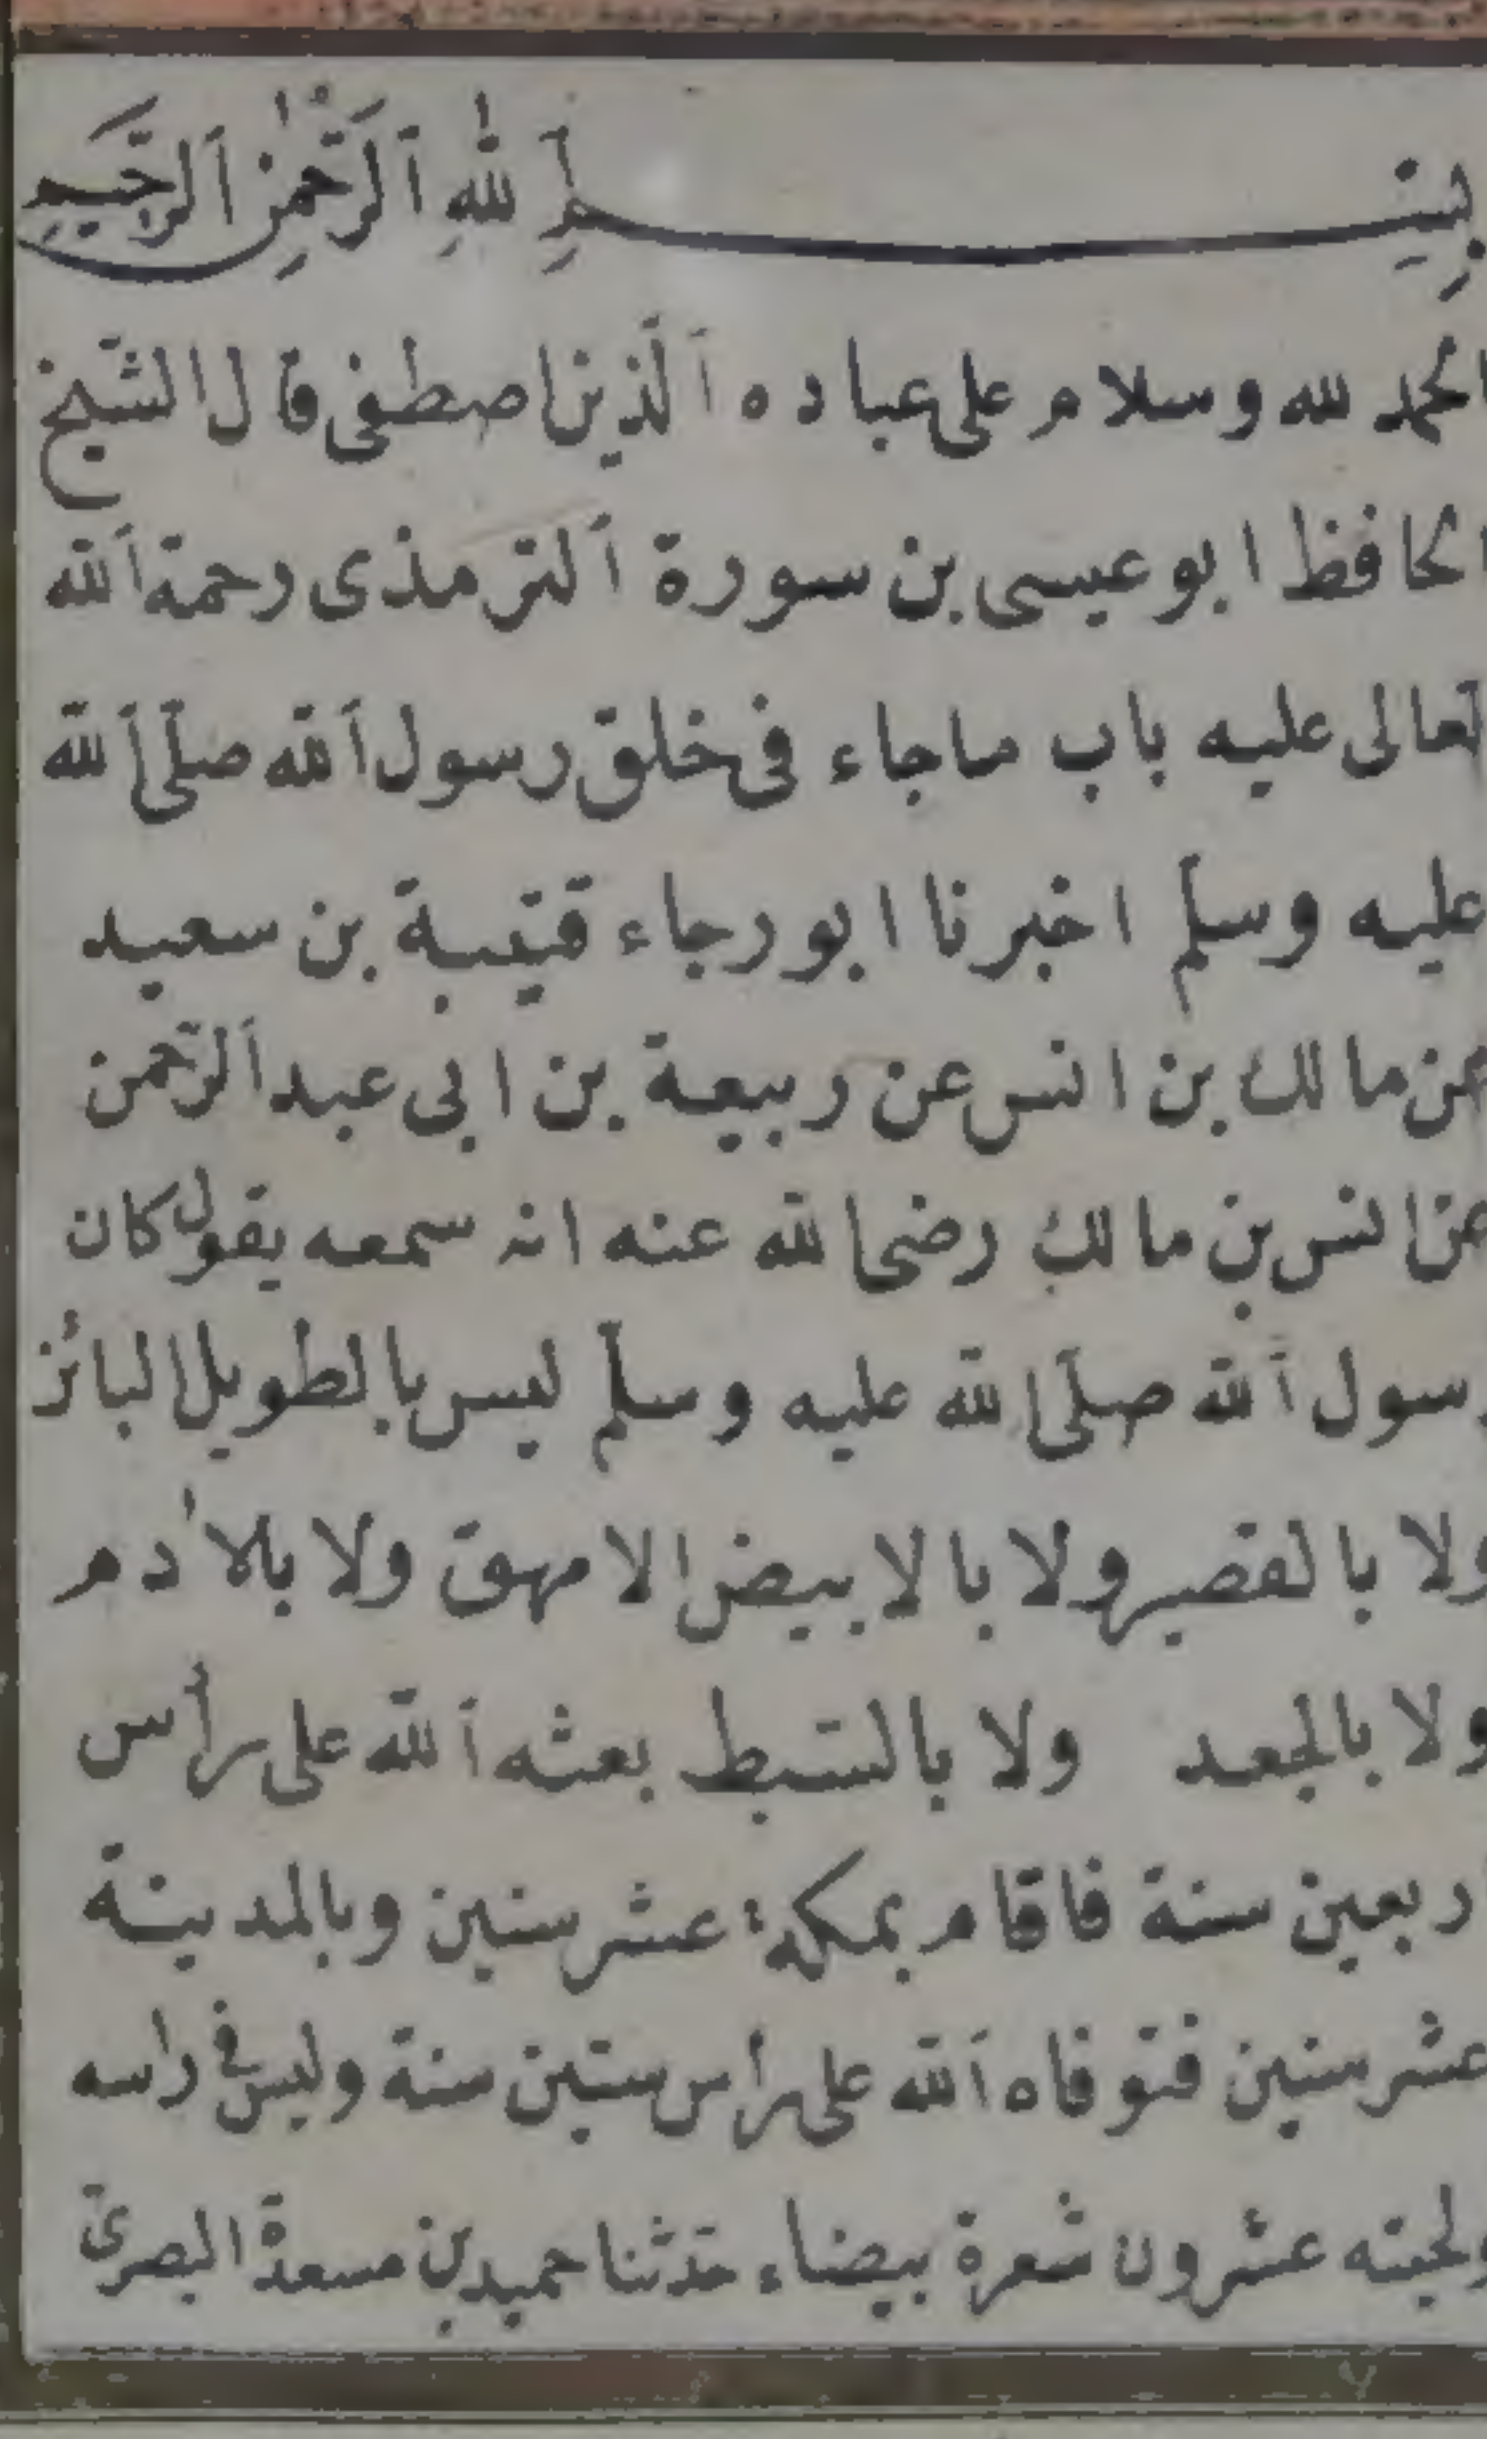 بِسْمِ اللّٰهِ الرَّحْمٰنِ الرَّحِيمِ
الحمد لله وسلام على عباده الّذين اصطفى قال الشّيخ
الحافظ ابو عيسى بن سورة الترمذى رحمة الله
تعالى عليه باب ماجاء فى خلق رسول الله صلّى الله
عليه وسلّم اخبرنا ابو رجاء قتيبة بن سعيد
عن مالك بن انس عن ربيعة بن ابى عبد الرّحمن
عن انس بن مالك رضى الله عنه انه سمعه يقول كان
رسول الله صلّى الله عليه وسلّم ليس بالطويل البائن
ولا بالقصير ولا بالابيض الامهق ولا بلاٰدم
ولا بالجعد ولا بالسّبط بعثه الله على رأس
اربعين سنة فاقام بمكة عشر سنين وبالمدينة
عشر سنين فتوفاه الله على رأس ستّين سنة وليس فى راسه
ولحيته عشرون شعرة بيضاء حدّثنا حميد بن مسعدة البصرىّ